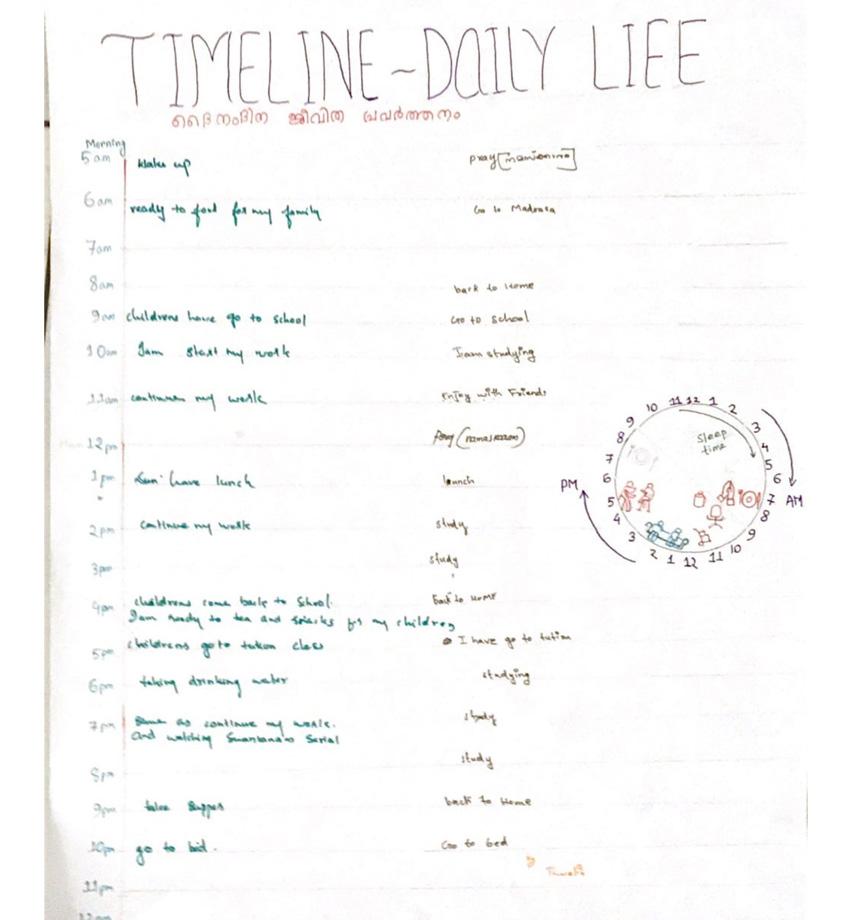 TIMELINE ~ DAILY LIFE
ദൈനംദിന ജീവിത പ്രവർത്തനം
Morning
5am Wake up pray [namaskaram]
6am ready to food for my family Go to Madrasa
7am
8am back to Home
9am childrens have go to school Go to school
10am Iam start my work Iam studying
11am continues my work Enjoy with Friends
12pm Pray (namaskaram)
1pm have lunch launch
2pm continue my work study
3pm study
4pm childrens come back to School. back to HOME
Iam ready to tea and snacks for my children
5pm childrens goto tution class I have go to tution
6pm taking drinking water studying
7pm Same as continue my work. study
And watching Serial
8pm study
9pm take supper back to Home
10pm go to bed. Goo to bed
11pm
12am
10 11 12 1 2
9 3
8 Sleep 4
time
7 5
6 6
PM 5 7 AM
4 8
3 9
2 1 12 11 10